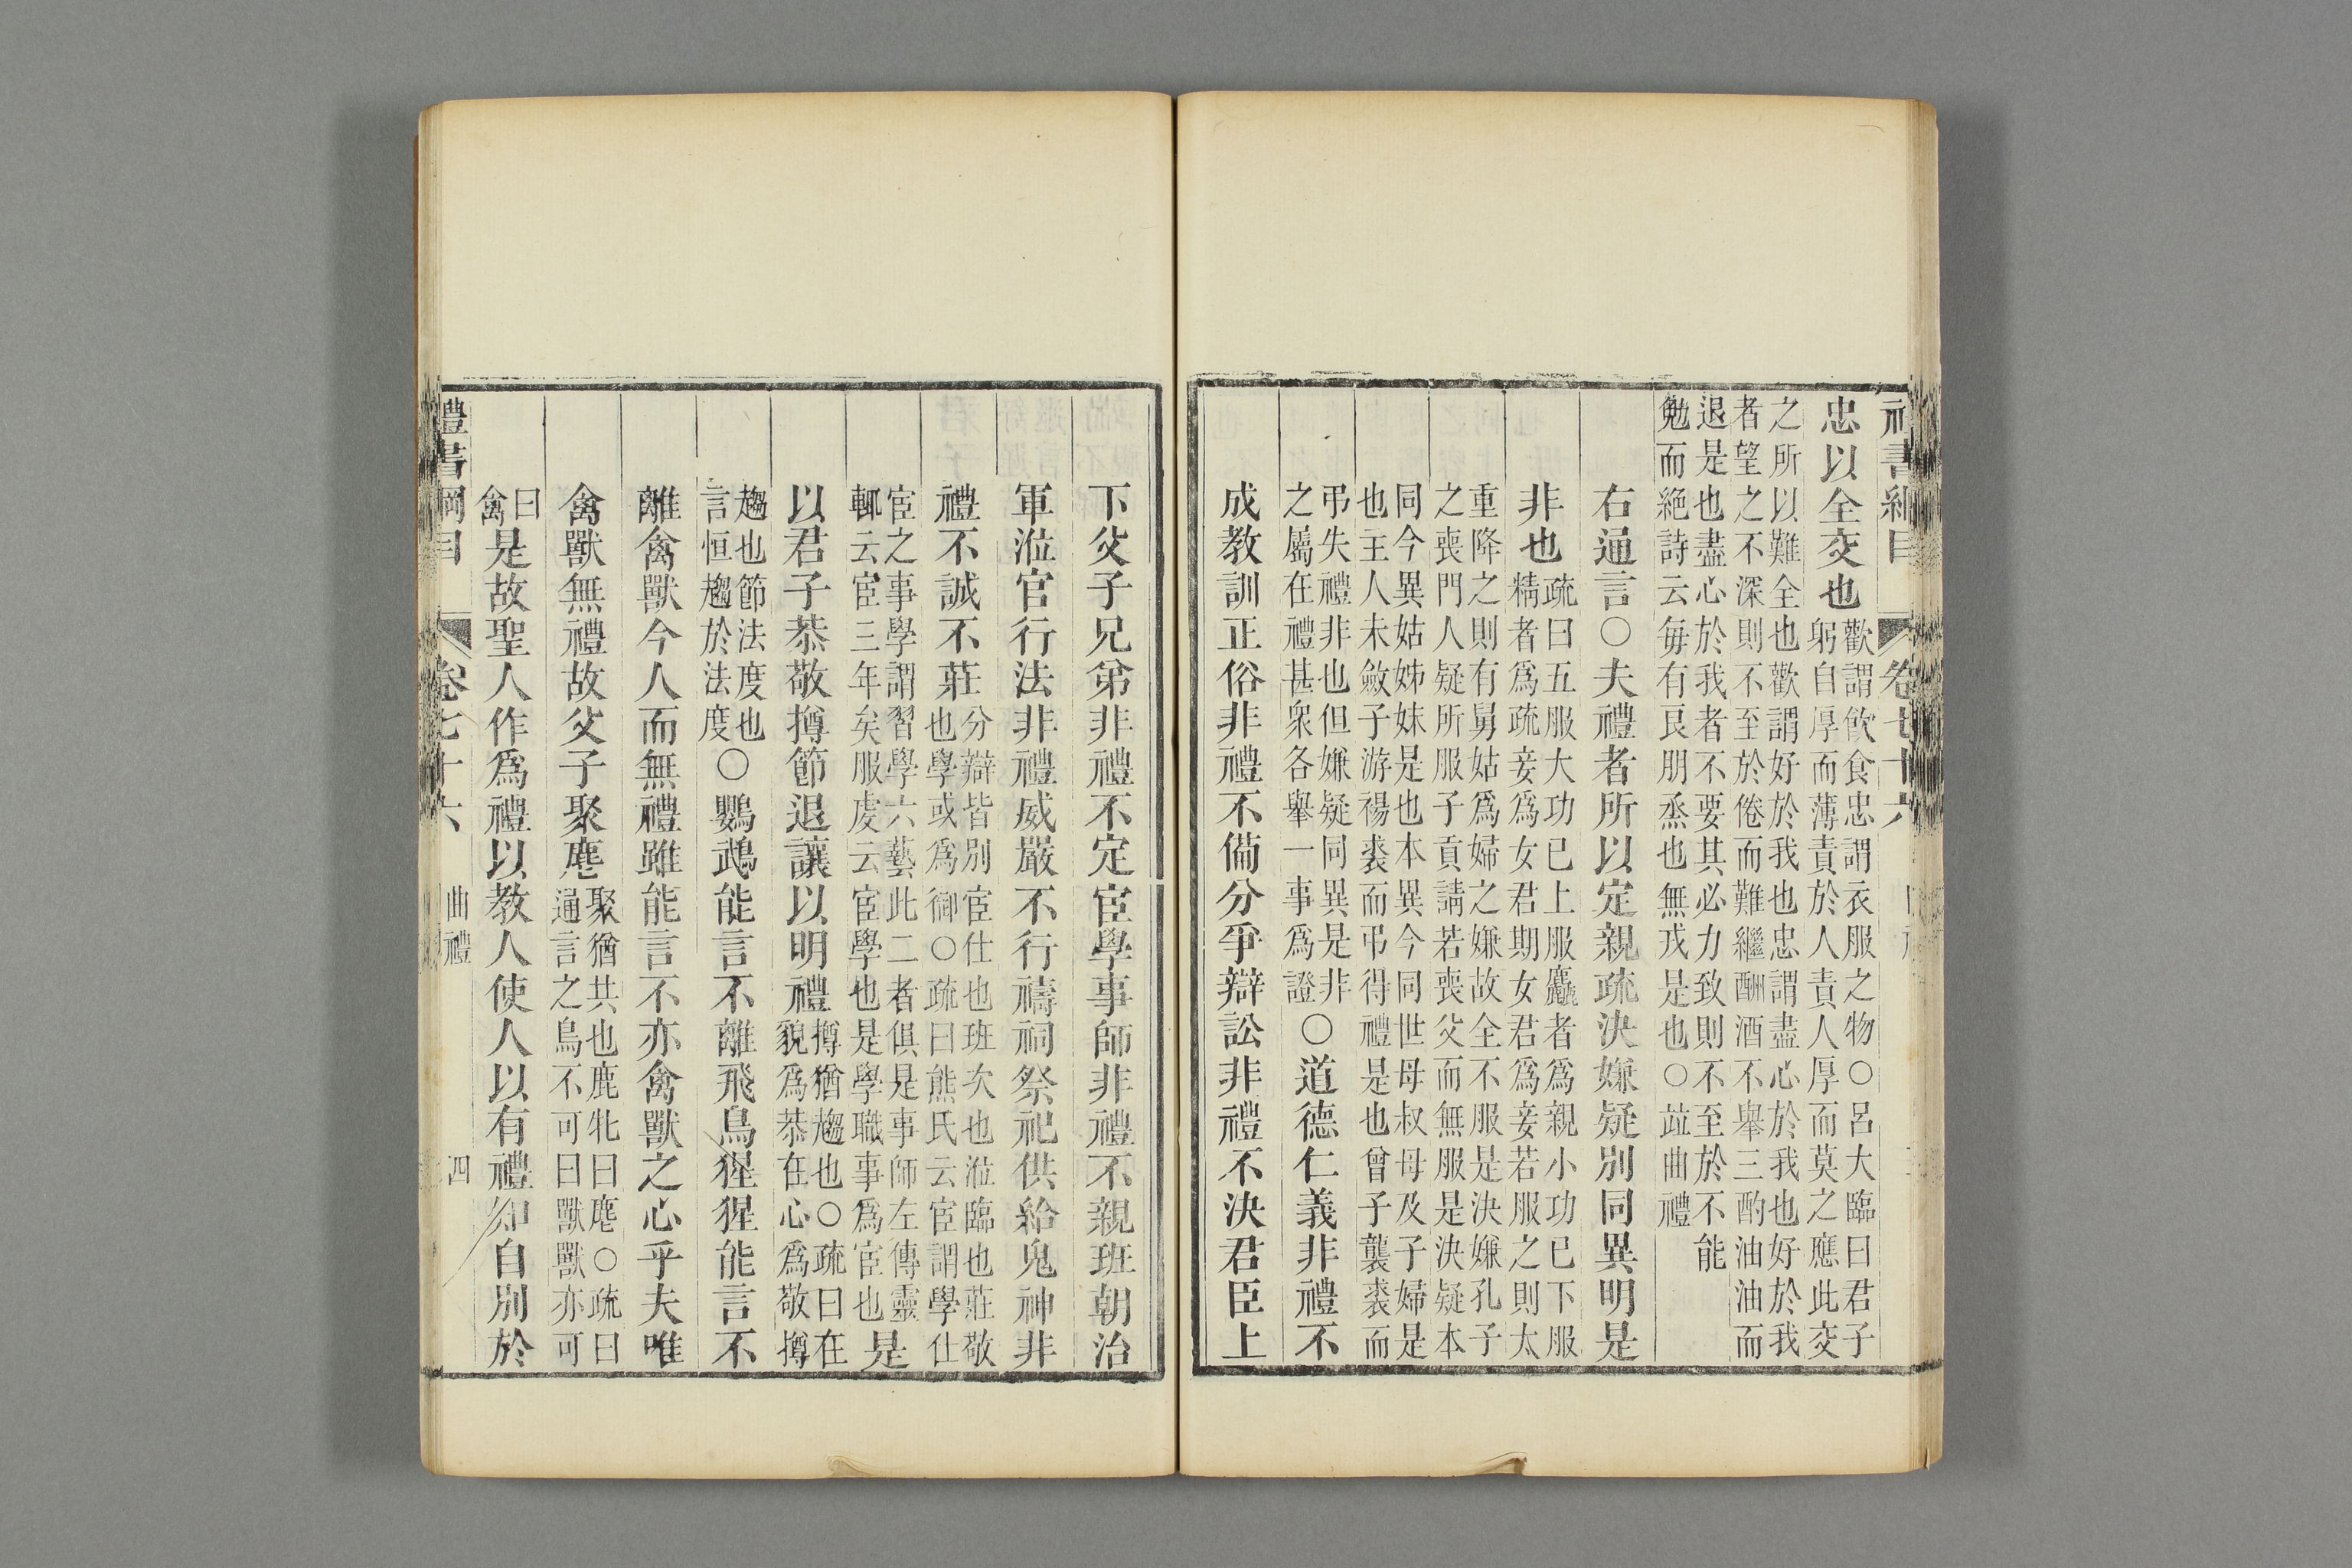 禮書綱目 卷七十六
忠以全交也歡謂飲食忠謂衣服之物○呂大臨曰君子
躬自厚而薄責於人責人厚而莫之應此交
之所以難全也歡謂好於我也忠謂盡心於我也好於我
者望之不深則不至於倦而難繼酬酒不舉三酌油油而
退是也盡心於我者不要其必力致則不至於不能
勉而絕詩云每有良朋烝也無戎是也○並曲禮
右通言○夫禮者所以定親疏決嫌疑別同異明是
非也疏曰五服大功已上服麤者爲親小功已下服
精者爲疏妾爲女君期女君爲妾若服之則太
重降之則有舅姑爲婦之嫌故全不服是決嫌孔子
之喪門人疑所服子貢請若喪父而無服是決疑本
同今異姑姊妹是也本異今同世母叔母及子婦是
也主人未斂子游裼裘而弔得禮是也曾子襲裘而
弔失禮非也但嫌疑同異是非
之屬在禮甚衆各舉一事爲證○道德仁義非禮不
成教訓正俗非禮不備分爭辯訟非禮不決君臣上
下父子兄弟非禮不定宦學事師非禮不親班朝治
軍涖官行法非禮威嚴不行禱祠祭祀供給鬼神非
禮不誠不莊分辯皆別宦仕也班次也涖臨也莊敬
也學或爲御○疏曰熊氏云宦謂學仕
宦之事學謂習學六藝此二者俱是事師左傳靈
輒云宦三年矣服虔云宦學也是學職事爲宦也是
以君子恭敬撙節退讓以明禮撙猶趨也○疏曰在
貌爲恭在心爲敬撙
趨也節法度也
言恒趨於法度○鸚鵡能言不離飛鳥猩猩能言不
離禽獸今人而無禮雖能言不亦禽獸之心乎夫唯
禽獸無禮故父子聚麀聚猶共也鹿牝曰麀○疏曰
通言之鳥不可曰獸獸亦可
曰
禽是故聖人作爲禮以教人使人以有禮知自別於
禮書綱目 卷七十六 曲禮 四